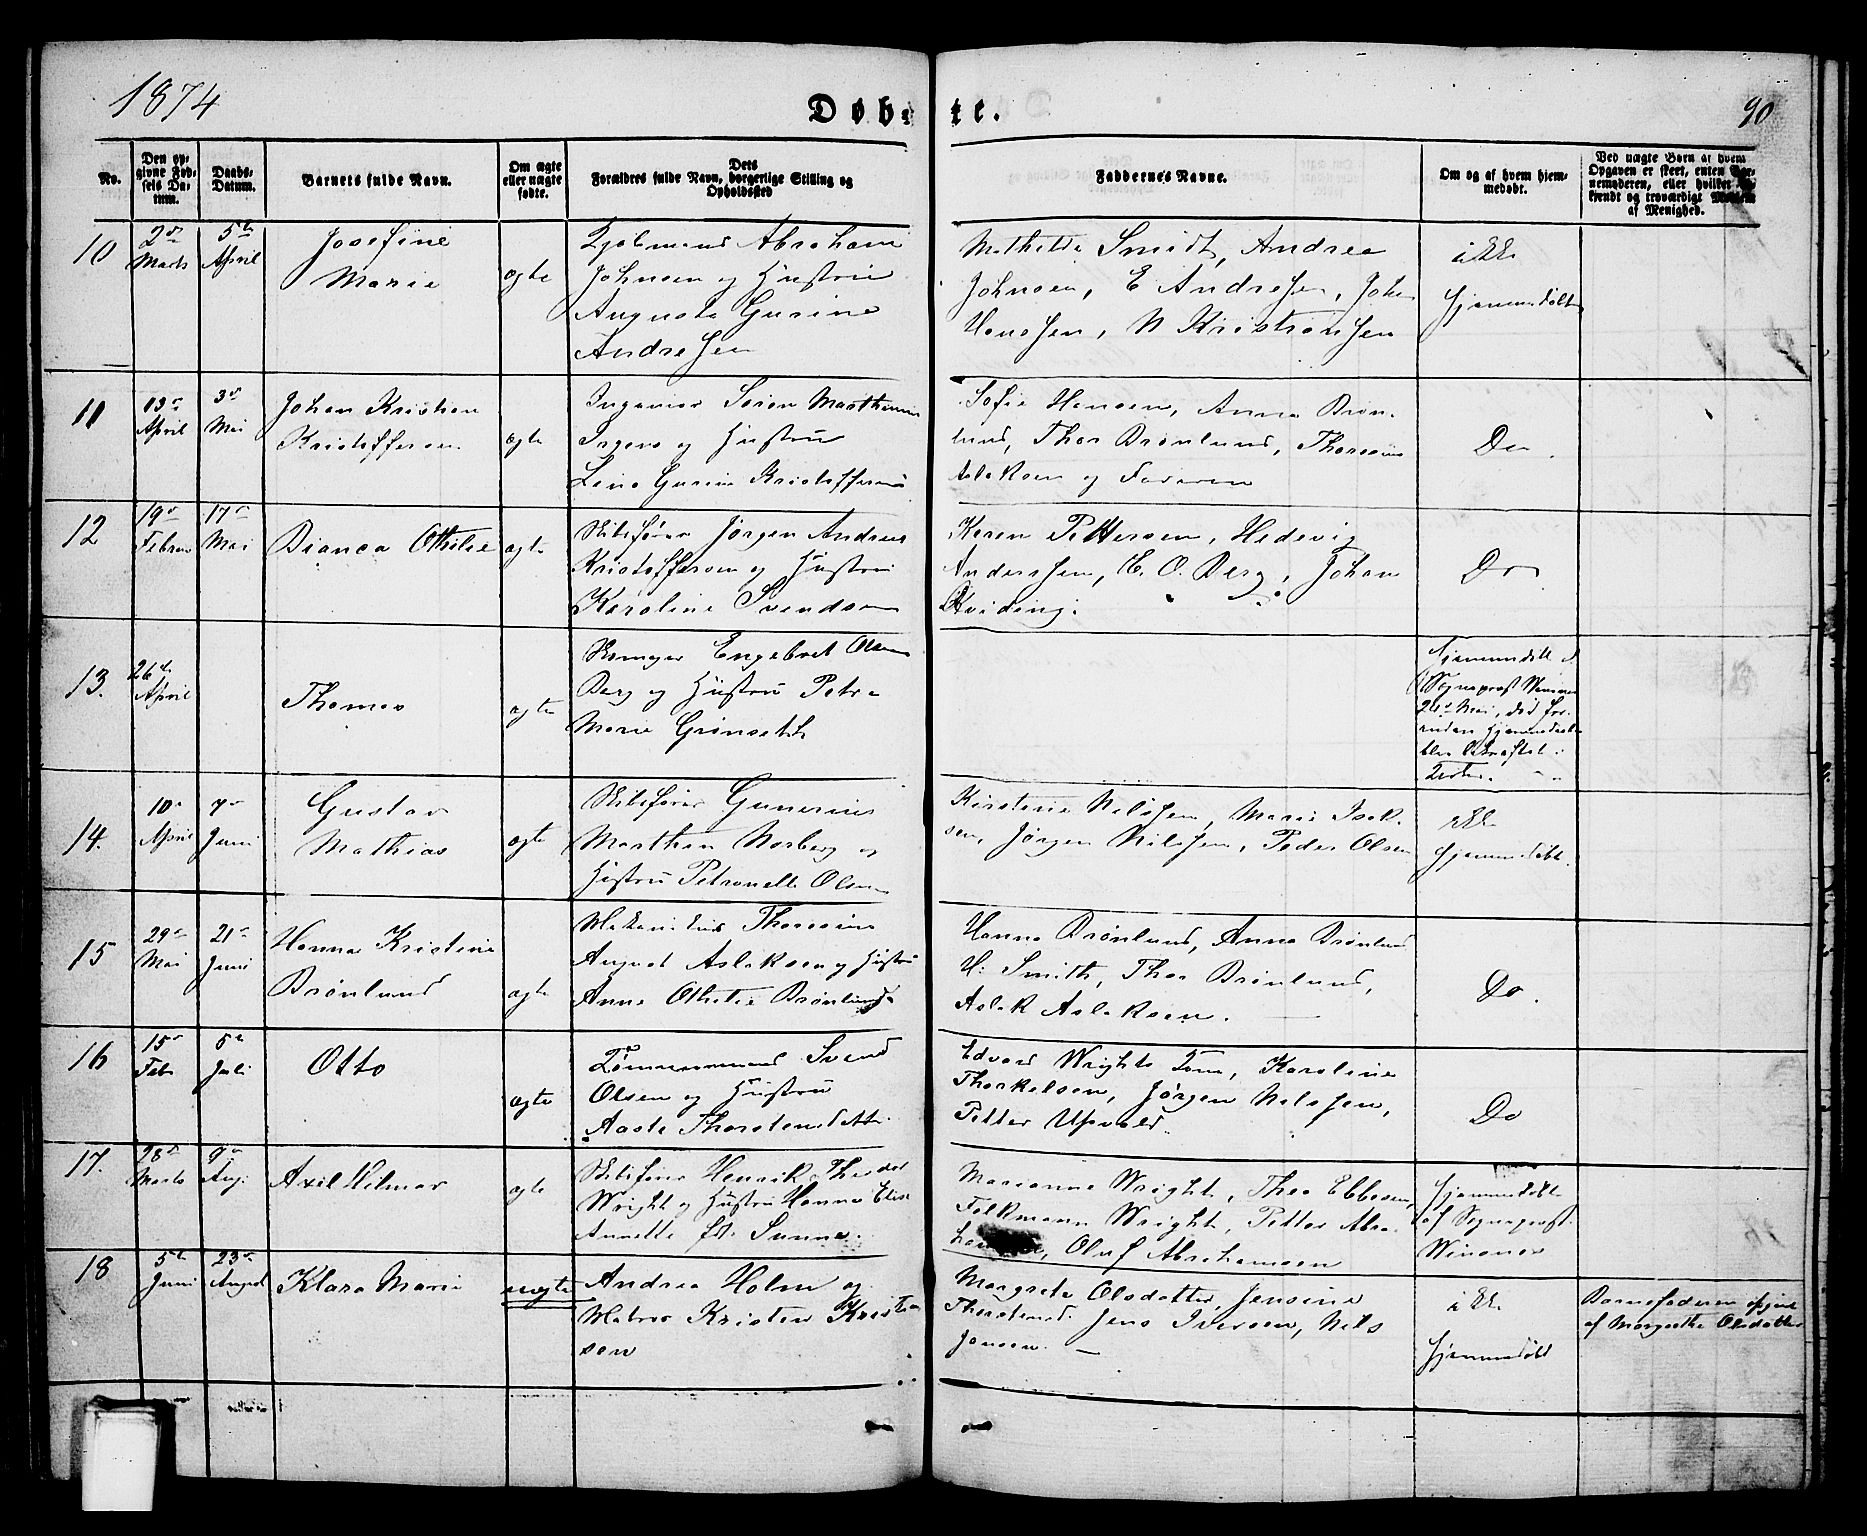 1874
Døb-te.
90
No.
Den op-
givne Fød-
sels Da-
tum.
Daabs-
Datum.
Barnets fulde Navn.
Om ægte
eller uægte
fødte.
Dets
Forældres fulde Navn, borgerlige Stilling og
Opholdssted
Faddernes Navne.
Om og af hvem hjem-
medøbt.
Ved uægte Børn af hvem
Opgaven er skeet, enten Bar-
nemoderen, eller hvilket be-
kjendt og troværdigt Medlem
af Menighed.
10
2den Marts
5te April
Josefine
Marie
ægte
Abraham
Johnsen og Hustru
Augusta Gurine
Andresen
Mathilde Smidt, Andrea
Johnsen, E Andresen, Joh
Hanssen, N Kristiansen
ikke
hjemmedøbt
11
13de April
3de Mai
Johan Kristian
Kristoffersen
ægte
Søren Marthinus
Irgens og Hustru
Lina Gurine Kristoffersen
Sofie Hansen, Anna Brøn-
lund, Thor Brønlund, Thorsine
Aslaksen og Faderen
Do
12
19de Februar
17de Mai
Bianca Othilie
ægte
Skibsfører Jørgen Andreas
Kristoffersen og Hustru
Karoline Svendsen
Karen Pettersen, Hedevig
Anderssen, H. O. Berg, Johan
Kviding.
Do
13.
26de April
Thomas
ægte
Engebret Olsen
Berg og Hustru Petra
Marie Grønseth
Hjemmedøbt af
Sogneprest
Mai, død for-
inden Hjemmedaaben
blev bekræftet i
Kirken.
14.
10de April
7de Juni
Gustav
Mathias
ægte
Skibsfører Gunerius
Marthin Norberg og
Hustru Petronelle Olsen
Kirstine Nilssen, Marie Isak-
sen, Jørgen Nilssen, Peder Olsen
ikke
hjemmedøbt.
15
29de Mai
21de Juni
Hanna Kristine
Brønlund
ægte
Thorsine
August Aslaksen og Hustru
Anne Othilie Brønlund
Hanna Brønlund, Anna Brønlund
H. Smith, Thor Brønlund,
Aslak Aslaksen.
Do.
16
15de Febr
5te Juli
Otto
ægte
Tømmermand Svend
Olsen og Hustru
Aaste Thorstensdatter
Edvard Wrights Kone, Karoline
Thorkelsen, Jørgen Nilssen,
Petter Upvald.
Do
17.
28de Marts
9de Aug.
Axil Hilmar
ægte
Skibsfører Henrik Theodor
Wright og Hustru Hanna Elise
Annette f. Sunne.
Marianne Wright, Thea Ebbesen,
Falkmann Wright, Petter Abra-
hamsen, Oluf Abrahamsen
Hjemmedøbt
af Sogneprest
Winsnes
18
5te Juni
23de August
Klara Marie
uægte
Andrea Holm og
Matros Kristen Kristen
sen
Margrete Olsdatter, Jensine
Thorstensd. Jens Iversen, Nils
Jansen. —
ikke
hjemmedøbt
Barnefaderen opgivet
af Margrethe Olsdatter